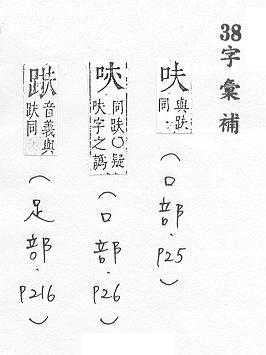 38字彙補
呋 與趺同
(口部.P25)
同趺○疑
呋字之譌
(口部.P26)
音義與
趺同
(足部.P216)